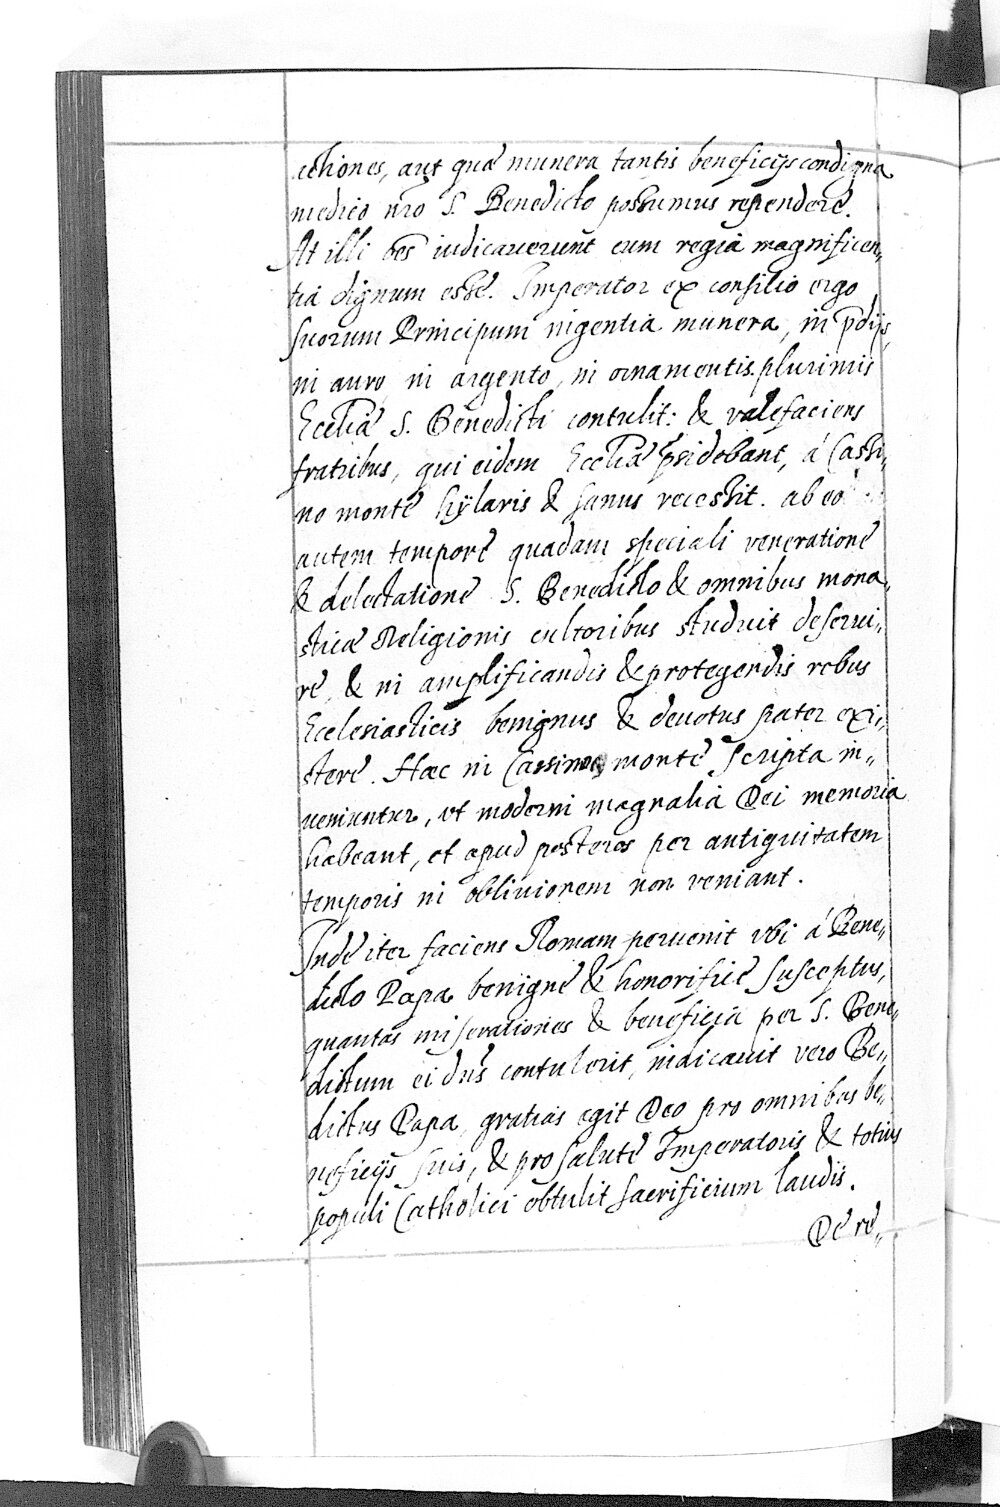 ctiones, aut quæ munera tantis beneficijs condigna
medico nr̃o S. Benedicto possumus rependere.
At illi oẽs iudicauerunt eum regia magnificen„
tia dignum esse. Imperator ex consilio ergo
suorum Principum ingentia munera, in p̃dijs,
in auro, in argento, in ornamentis plurimis
Eccliæ S. Benedicti contulit: & valefaciens
fratribus, qui eidem Eccliæ p̃sidebant, á Cassi„
no monte hÿlaris & sanus recessit. ab eo
autem tempore quadam speciali veneratione
& delectatione S. Benedicto & omnibus mona„
sticæ Religionis cultoribus studuit deserui„
re, & in amplificandis & protegendis rebus
Ecclesiasticis benignus & deuotus pater exi„
stere. Hæc in Cassino monte scripta in„
ueniuntur, vt moderni magnalia Dei memoria
habeant, et apud posteros per antiquitatem
temporis in obliuionem non veniant.
Inde iter faciens Romam peruenit vbi á Bene„
dicto Papa benigne & honorifice susceptus,
quantas miserationes & beneficia per S. Bene„
dictum ei dñs contulerit, indicauit vero Be„
dictus Papa, gratias egit Deo pro omnibus be„
neficijs suis, & pro salute Imperatoris & totius
populi Catholici obtulit sacrificium laudis.
De re„